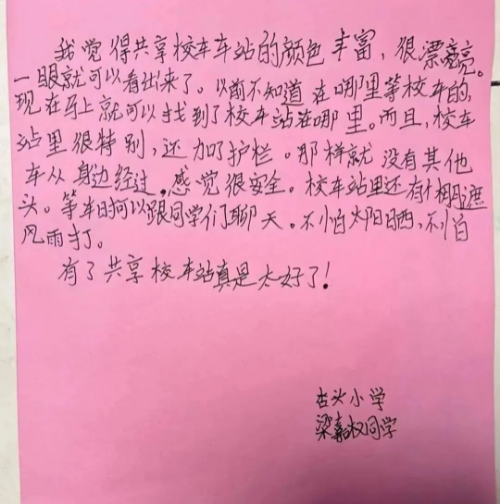 我觉得共享校车车站的颜色丰富，很漂亮。
一眼就可以看出来了。以前不知道在哪里等校车的，
现在马上就可以找到了校车站在哪里。而且，校车
站里很特别，还加了护栏。那样就没有其他
车从身边经过，感觉很安全。校车站里还有棚遮
头。等车时可以跟同学们聊天。不怕太阳晒，不怕
风雨打。
有了共享校车站真是太好了！
杏头小学
梁嘉权同学